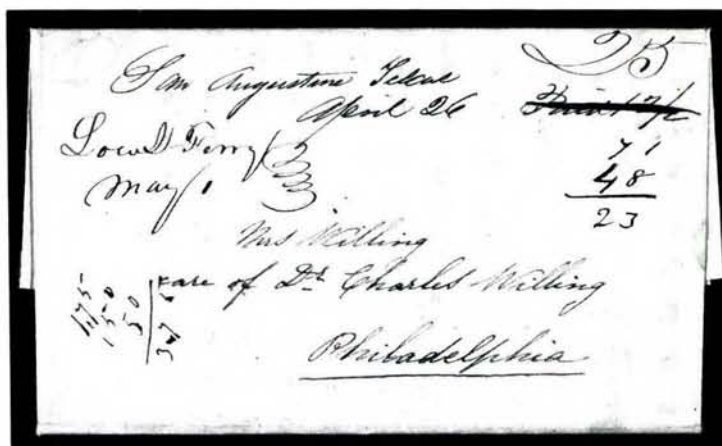 25
San Augustine Texas
April 26
Paid
71
48
23
Lowd Ferry
May 1
Mrs Willing
care of Dr Charles Willing
Philadelphia
175
150
50